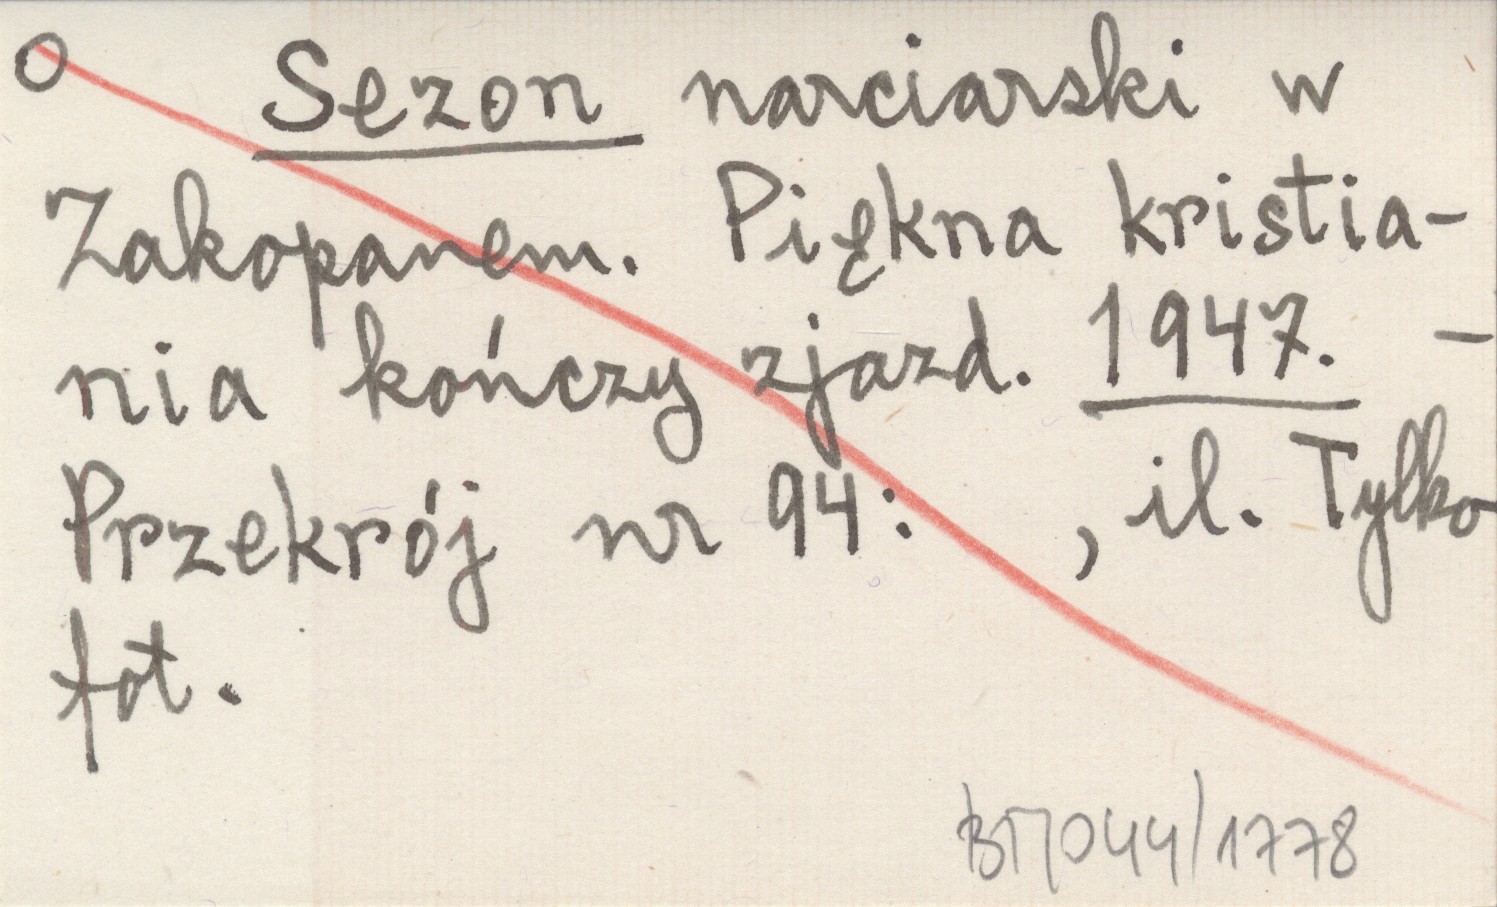 O Sezon narciarski w
Zakopanem. Piękna kristia-
nia kończy zjazd. 1947. -
Przekrój nr 94: , il. Tylko
fot.
BT/044/1778